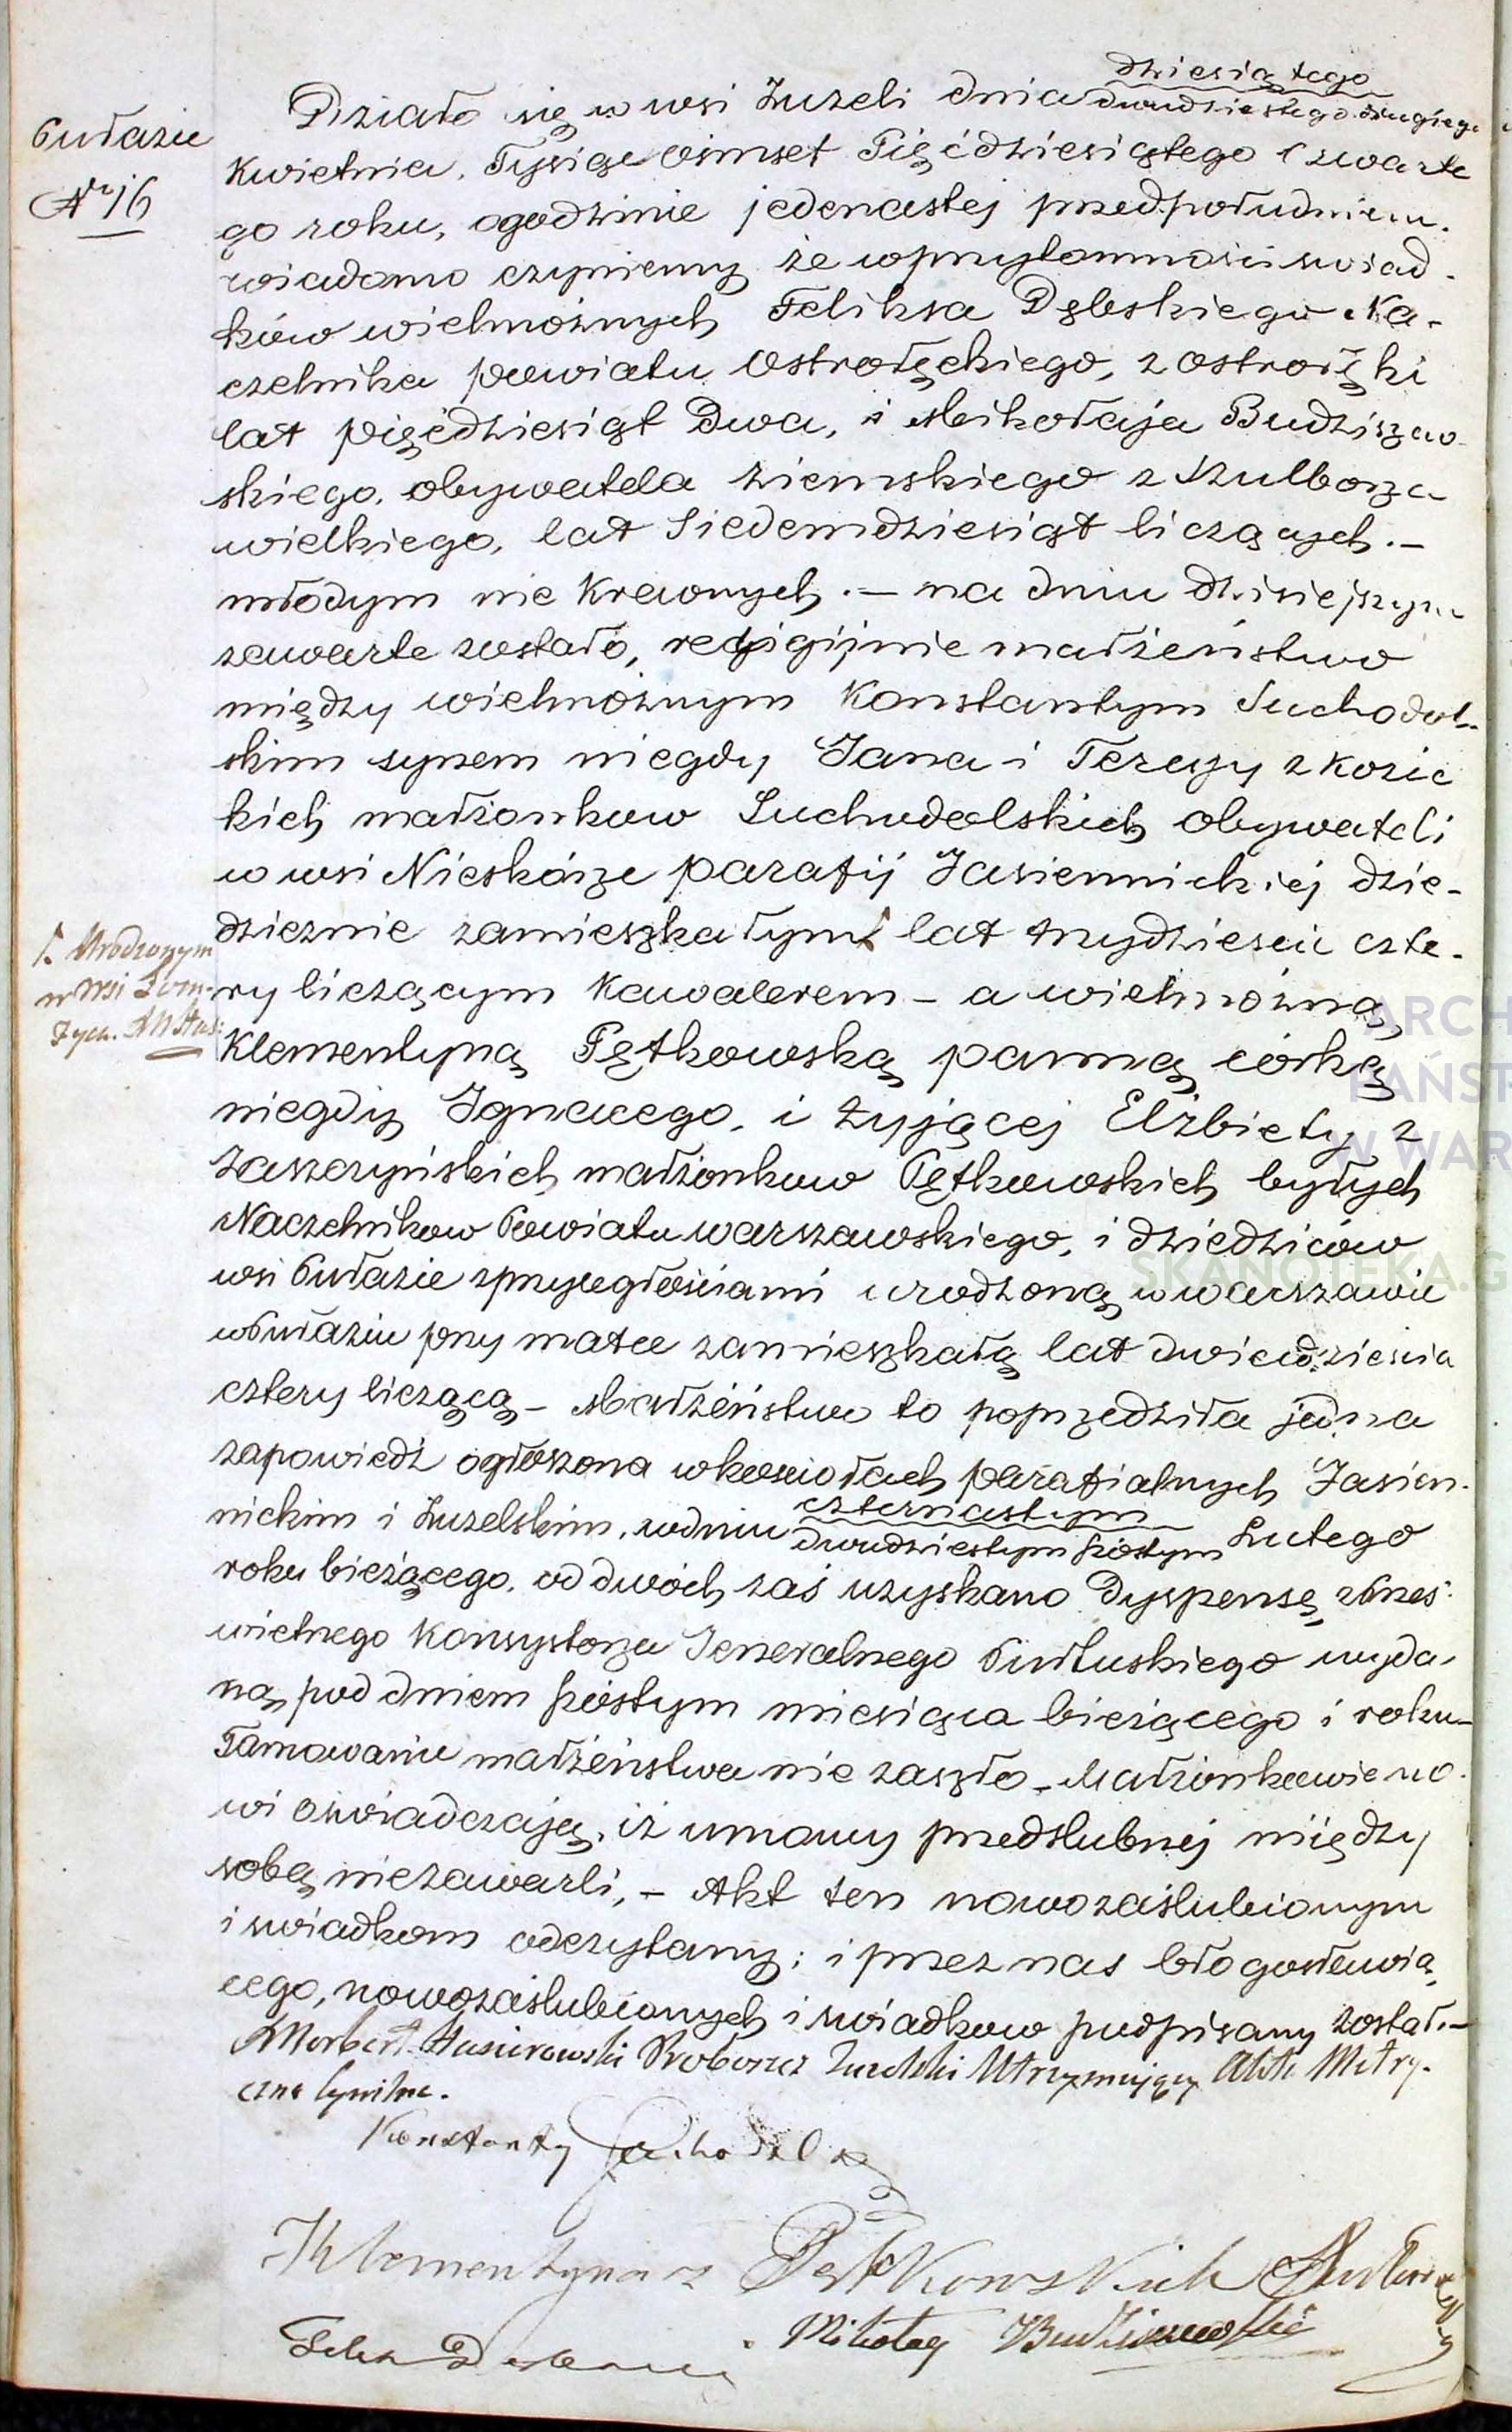 Pułazie
№ 16
dziesiątego
Działo się w wsi Zuzeli dnia dwudziestego drugiego
Kwietnia, Tysiąc ośmset Pięćdziesiątego Czwarte
go roku, ogodzinie jedenastej przedpołudniem.
wiadomo czyniemy że wprzytomności świad-
ków wielmożnych Feliksa Dębskiego Na-
czelnika powiatu Ostrołęckiego, z Ostrołęki
lat pięćdziesiąt Dwa, i Mikołaja Budziszew-
skiego, obywatela ziemskiego z Szulborza
wielkiego, lat Siedemdziesiąt liczących.—
młodym nie Krewnych.— na dniu dzisiejszym
zawarte zostało, religijnie małżeństwo
między wielmożnym Konstantym Suchodol-
skim synem niegdy Jana i Teresy z Kosic
kich małżonkow Suchodolskich obywateli
w wsi Nieskórze parafij Jasiennickiéj dzie-
dzicznie zamieszkałym lat trzydzieści czte-
/. Urodzonym
w wsi
ry liczącym Kawalerem – a wielmożną
Klementyną Pętkowską panną córką
niegdy Ignacego, i żyjącej Elżbiety z
Zaszczyńskich małżonkow Pętkowskich byłych
Naczelnikow Powiatu warszawskiego, i dziedziców
wsi Pułazie zprzyległościami urodzoną w warszawie
w Pułaziu przy matce zamieszkałą lat dwiedzieścia
cztery liczącą – Małżeństwo to poprzedziła jedna
zapowiedź ogłoszona wkościołach parafialnych Jasien-
nickim i Zuzelskim, wdniu
czternastym
dwudziestym szóstym Lutego
roku bieżącego, od dwóch zaś uzyskano Dyspensę zPrześ-
wietnego Konsystorza Jeneralnego Pułtuskiego wyda-
ną pod dniem szóstym miesiąca bieżącego i roku–
Tamowanie małżeństwa nie zaszło – Małżonkowie no-
wi oświadczają, iż umowy przedślubnej między
sobą niezawarli, – Akt ten nowozaślubionym
i świadkom odczytany; i przez nas błogosławią-
cego, nowozaślubionych i świadkow podpisany został.–
Norbert Proboszcz Zuzelski Utrzymujący Akta Metry-
czne Cywilne.
Konstanty Suchodolski
Klementyna z Pętkowskich
Mikołay Budziszewski